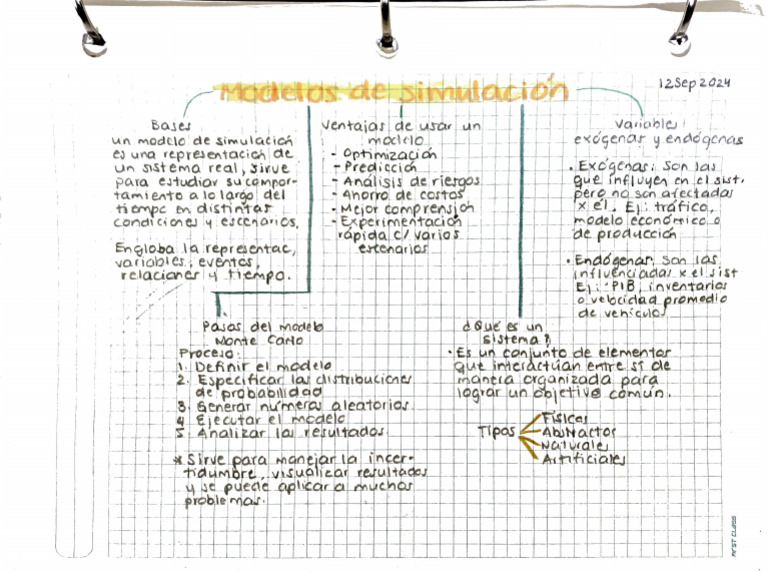 Modelos de simulación
12 Sep 2024
Bases
un modelo de simulación
es una representación de
un sistema real, sirve
para estudiar su compor-
tamiento a lo largo del
tiempo en distintas
condiciones y escenarios.
Engloba la representac,
variables, eventos,
relaciones y tiempo.
Ventajas de usar un
modelo
- Optimización
- Predicción
- Análisis de riesgos
- Ahorro de costos
- Mejor comprensión
- Experimentación
rápida c/ varios
escenarios
Variables
exógenas y endógenas
• Exógenas: Son las
que influyen en el sist,
pero no son afectadas
x el. Ej: tráfico,
modelo económico o
de producción
• Endógenas: Son las
influenciadas x el sist
Ej: PIB, inventarios
o velocidad promedio
de vehículos
Pasos del modelo
Monte Carlo
Proceso:
1. Definir el modelo
2. Especificar las distribuciones
de probabilidad
3. Generar números aleatorios
4. Ejecutar el modelo
5. Analizar los resultados
* Sirve para manejar la incer-
tidumbre, visualizar resultados
y se puede aplicar a muchos
problemas.
¿Qué es un
sistema?
• Es un conjunto de elementos
que interactúan entre sí de
manera organizada para
lograr un objetivo común.
Tipos
Físicos
Abstractos
Naturales
Artificiales
FIRST CLASS